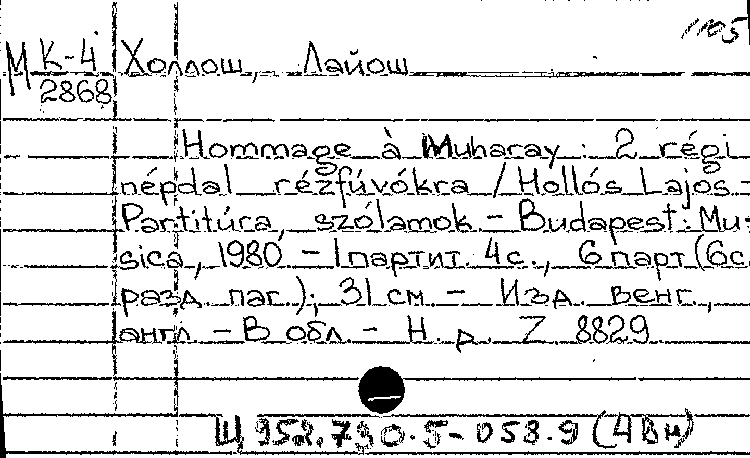 1105
М К-4 Холлош, Лайош
2868
Hommage à Muharay : 2 régi
népdal rézfúvókra / Hollós Lajos –
Partitúra, szólamok – Budapest: Mu-
sica, 1980 – 1 партит. 4 с., 6 парт (6 с.
разд. паг.); 31 см – Изд. венг.,
англ. – В обл. – Н. р. Z 8829
Щ 952.730.5-053.9 (4Вн)